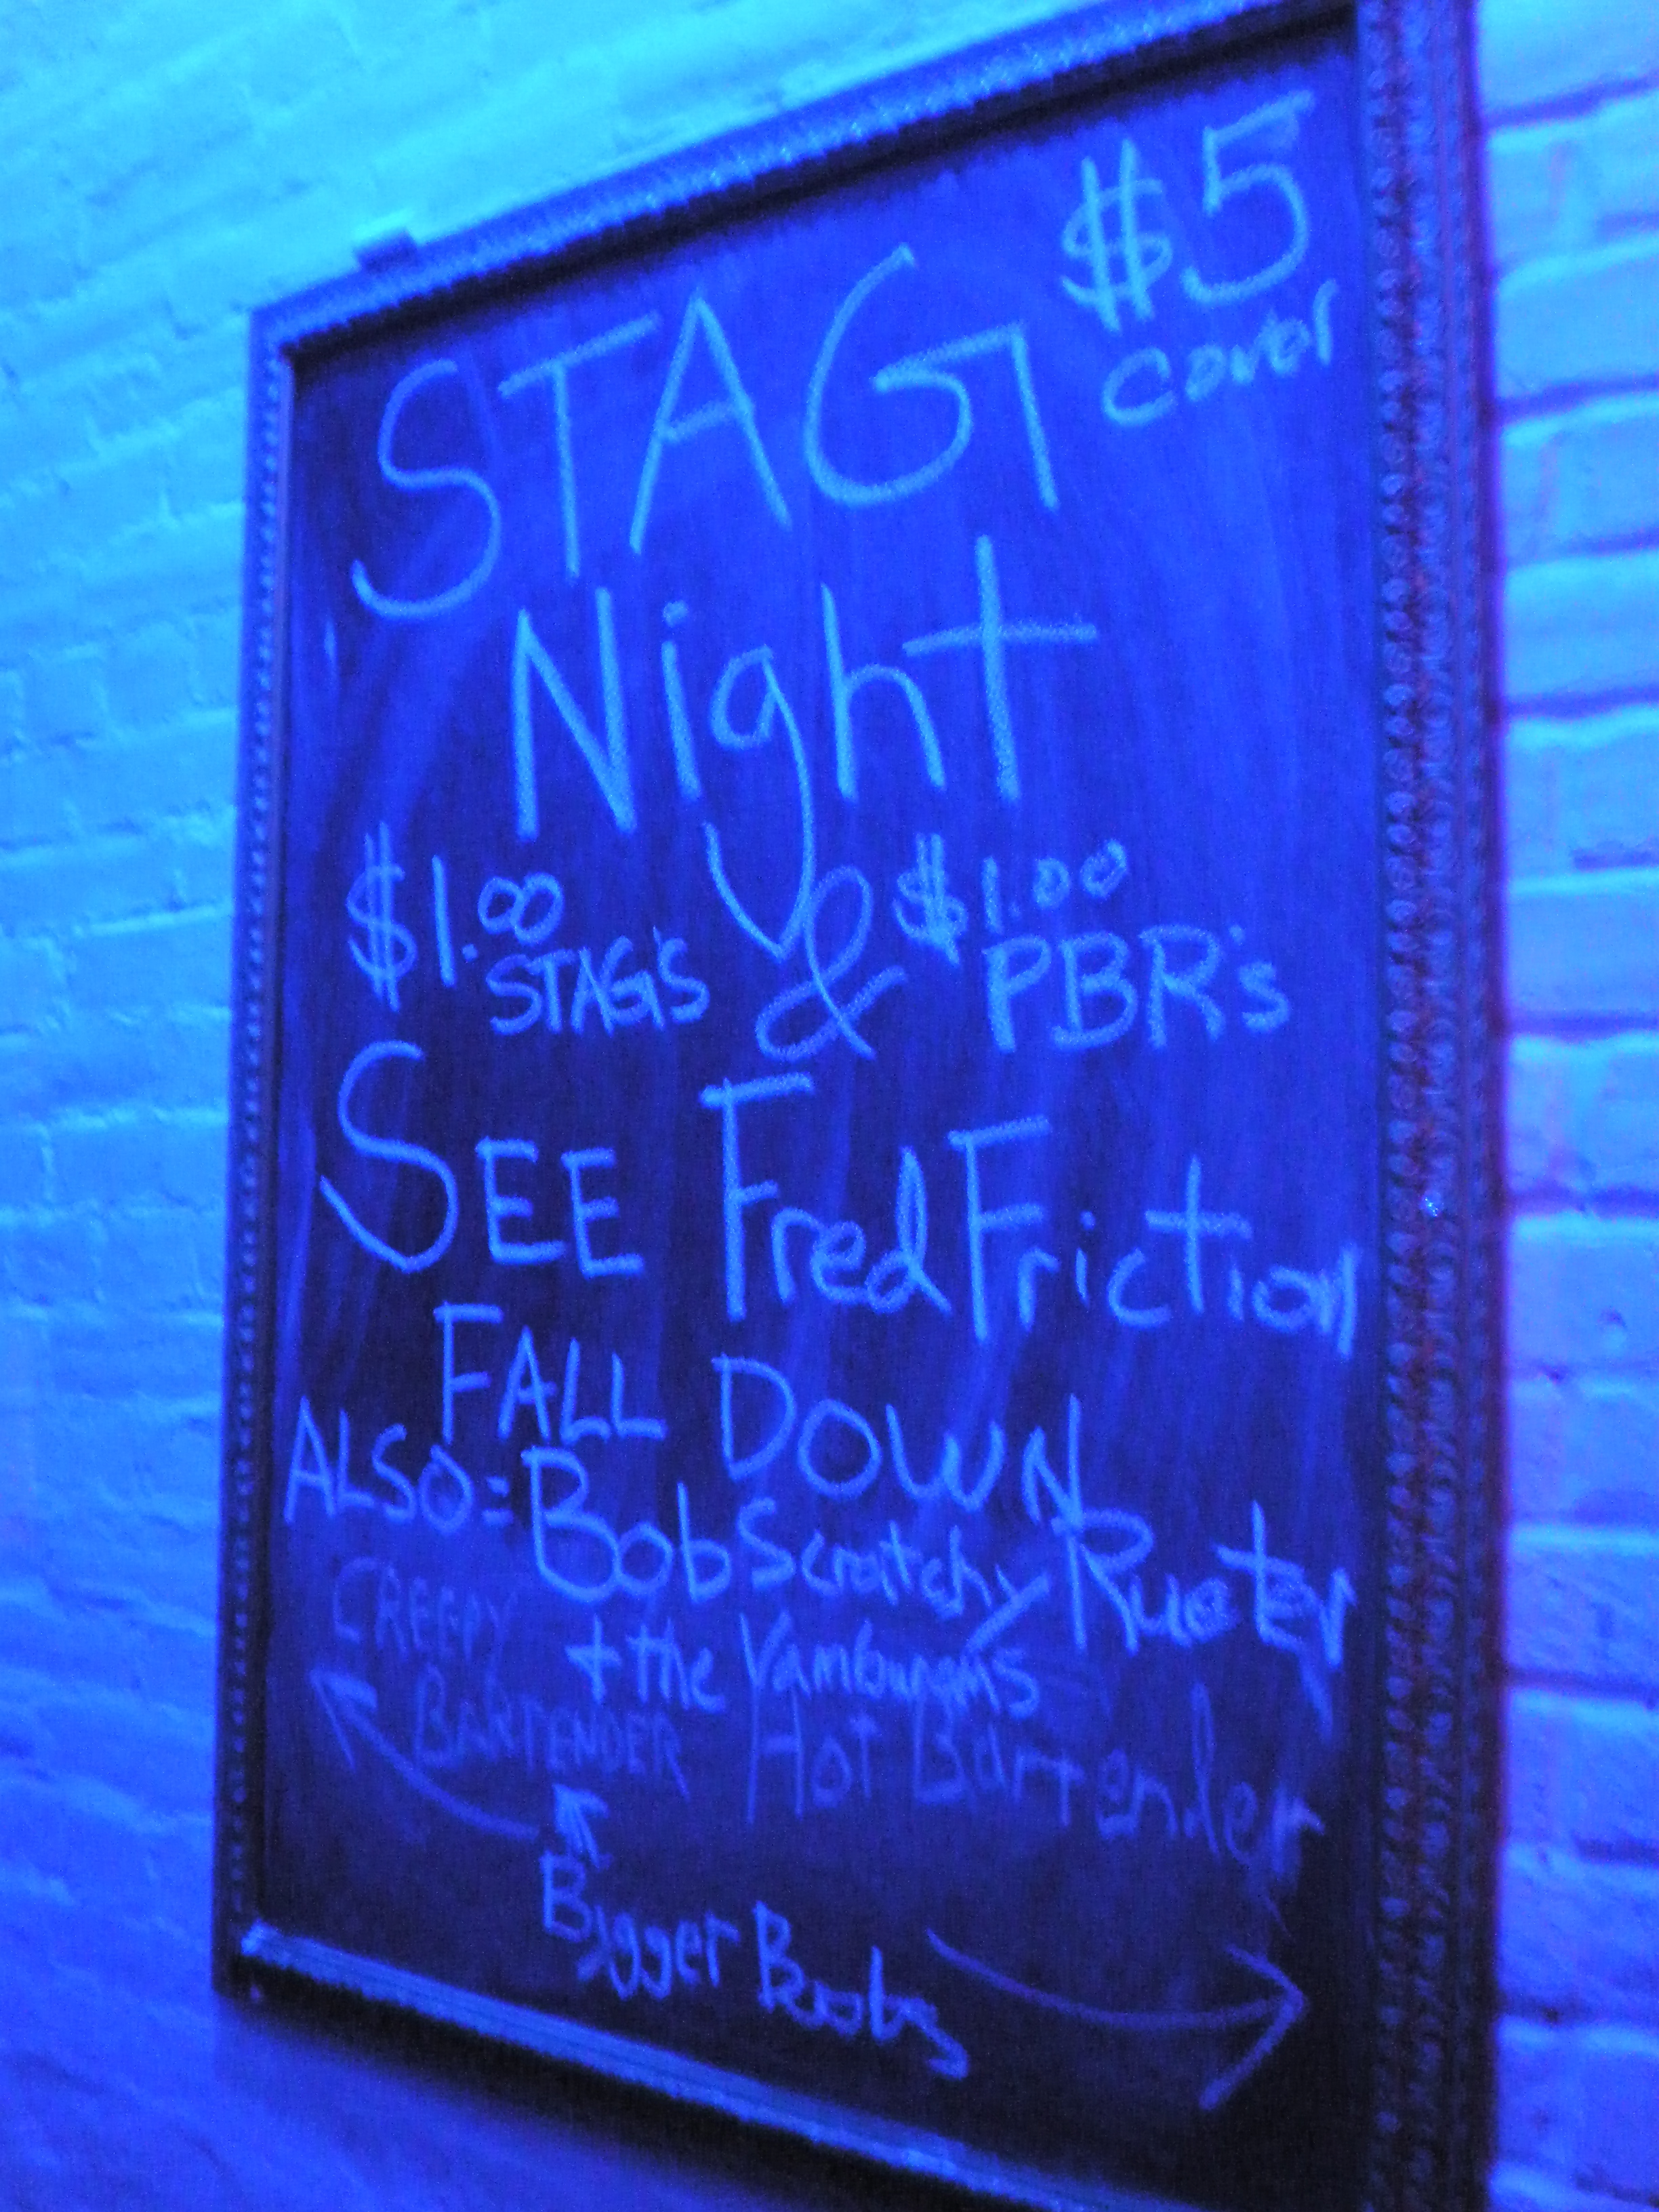 $5
cover
STAG
Night
$1.00 STAG'S & $1.00 PBR's
SEE Fred Friction
FALL DOWN
ALSO: Bob Scratchy Rueter
+ the Vamburgms
CREEPY
BARTENDER
Hot Bartender
Bigger Boobs